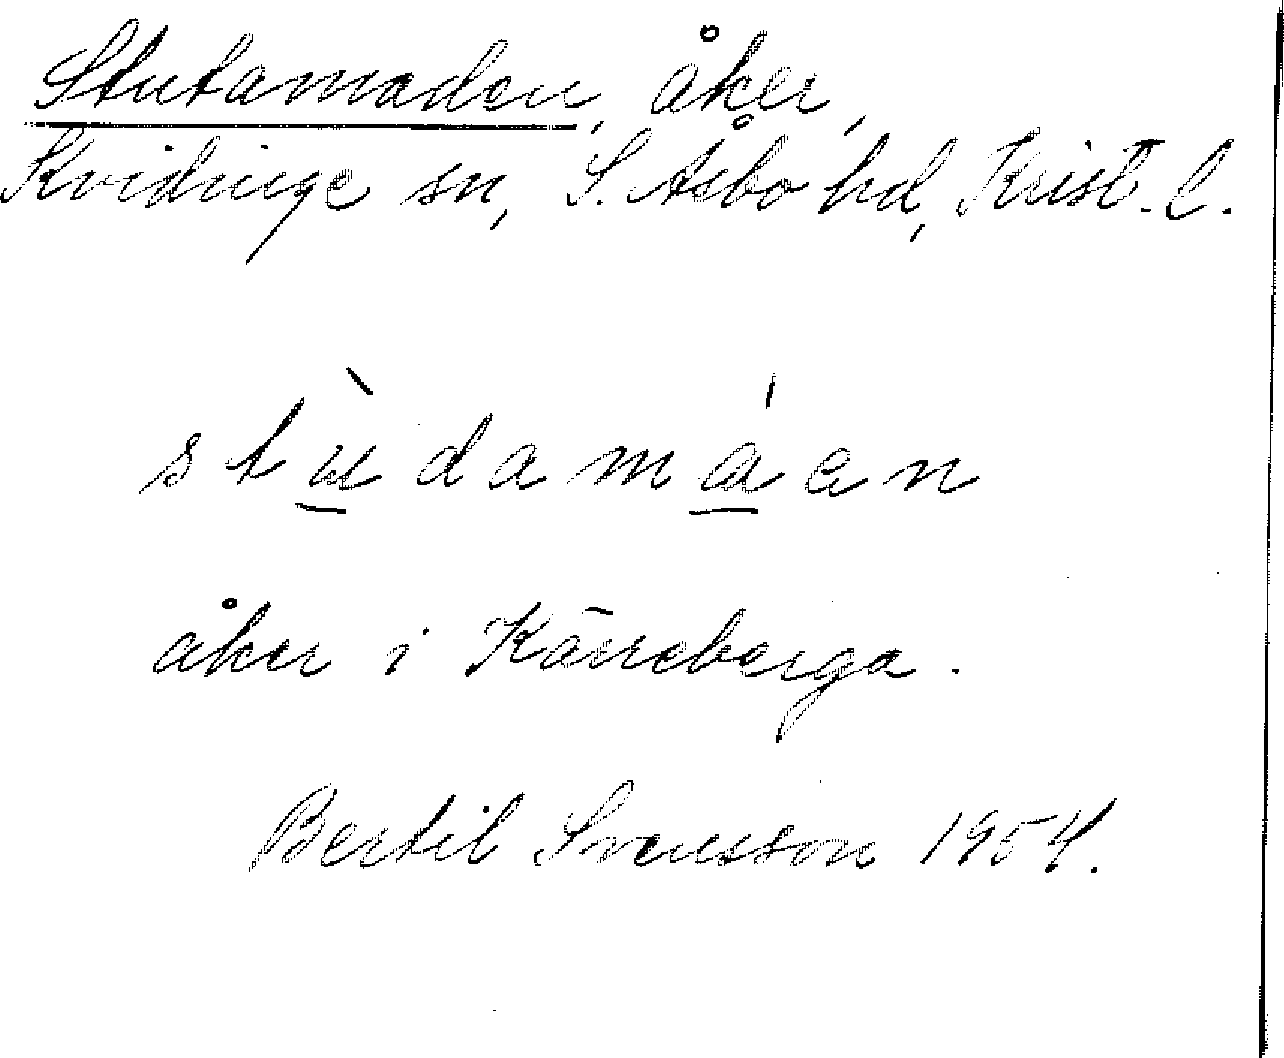 Stutamaden, åker,
Kvidinge sn, S. Åsbo hd, Krist. l.
stùdamáen
åker i Kärreberga.
Bertil Svensson 1954.